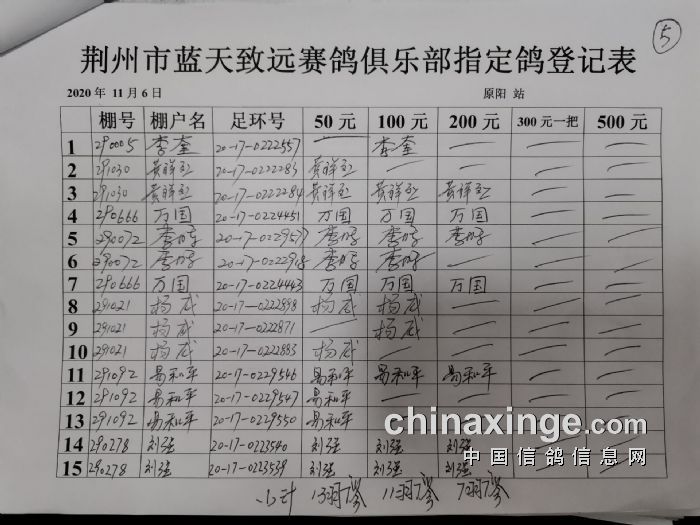 5
荆州市蓝天致远赛鸽俱乐部指定鸽登记表
2020年 11月6日 原阳 站
棚号 棚户名 足环号 50元 100元 200元 300元一把 500元
1 290005 李奎 20-17-0222557 — 李奎 — — —
2 291030 黄祥玉 20-17-0222283 黄祥玉 — — — —
3 291030 黄祥玉 20-17-0222284 黄祥玉 黄祥玉 黄祥玉 — —
4 290666 万国 20-17-0224451 万国 万国 万国 — —
5 290072 20-17-0229577 — —
6 290072 — — —
7 290666 万国 20-17-0224443 万国 万国 万国 — —
8 291021 杨成 20-17-0222898 杨成 杨成 — — —
9 291021 杨成 20-17-0222871 — 杨成 — — —
10 291021 杨成 20-17-0222883 杨成 — — — —
11 291092 易和平 20-17-0229546 易和平 易和平 易和平 — —
12 291092 易和平 20-17-0229547 易和平 — — — —
13 291092 易和平 20-17-0229550 易和平
14 290278 刘强 20-17-0223540 刘强 刘强 刘强
15 290278 刘强 20-17-0223539 刘强 刘强 刘强 — —
小计 13羽 11羽 7羽
chinaxinge.com
中国信鸽信息网